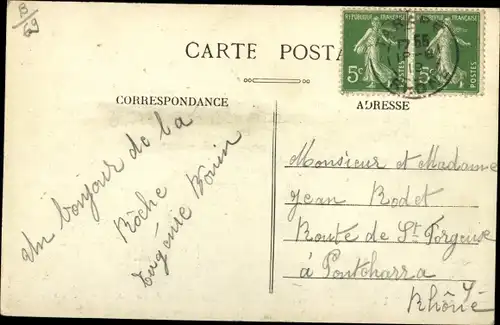 B/69
CARTE POSTA
RÉPUBLIQUE FRANÇAISE
5c POSTES
RÉPUBLIQUE FRANÇAISE
5c POSTES
CORRESPONDANCE
ADRESSE
Un bonjour de la
Rôche
Eugénie Bonin
Monsieur et Madame
Jean Rodet
Route de St Forgeuse
à Pontcharra
Rhône